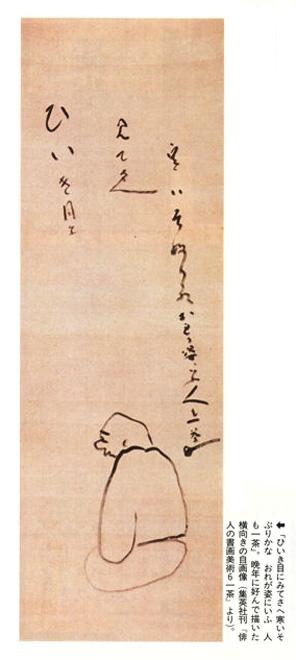 ひいき目に
見てさへ
寒いそふり
人も一茶
⬅「ひいき目にみてさへ寒いそ
ぶりかな おれが姿にいふ 人
も一茶」。晩年に好んで描いた
横向きの自画像(集英社刊『俳
人の書画美術6一茶』より)。